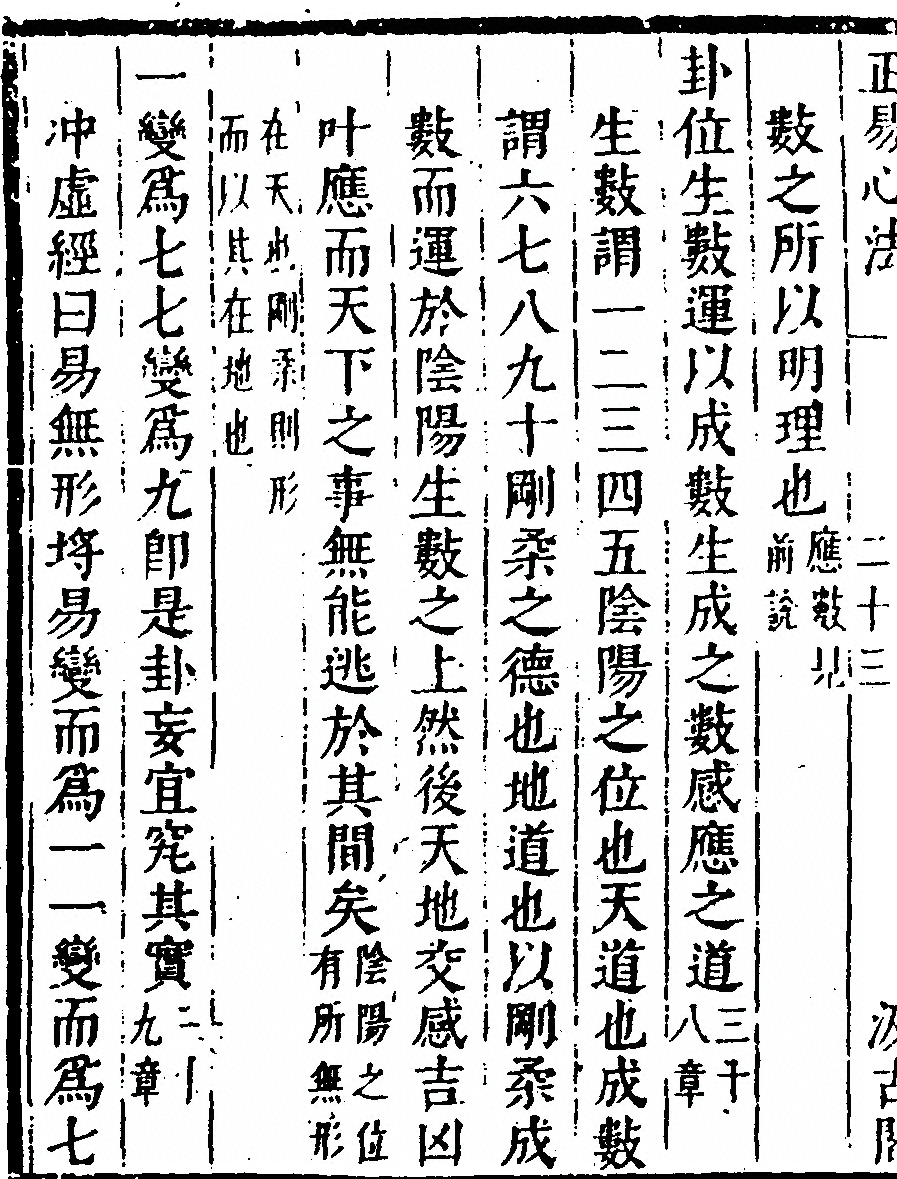 正易心法 二十三 汲古閣
數之所以明理也應數見前說
卦位生數運以成數生成之數感應之道三十八章
生數謂一二三四五陰陽之位也天道也成數
謂六七八九十剛柔之德也地道也以剛柔成
數而運於陰陽生數之上然後天地交感吉凶
叶應而天下之事無能逃於其間矣陰陽之位有所無形
在天也剛柔則形而以其在地也
一變爲七七變爲九卽是卦妄宜究其實二十九章
冲虛經曰易無形埒易變而爲一一變而爲七